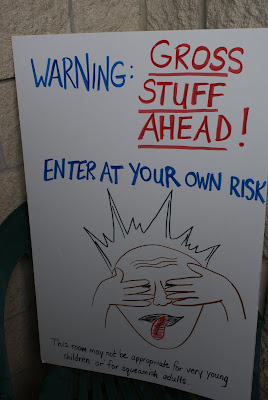 WARNING: GROSS
STUFF
AHEAD!
ENTER AT YOUR OWN RISK
This room may not be appropriate for very young
children or for squeamish adults.